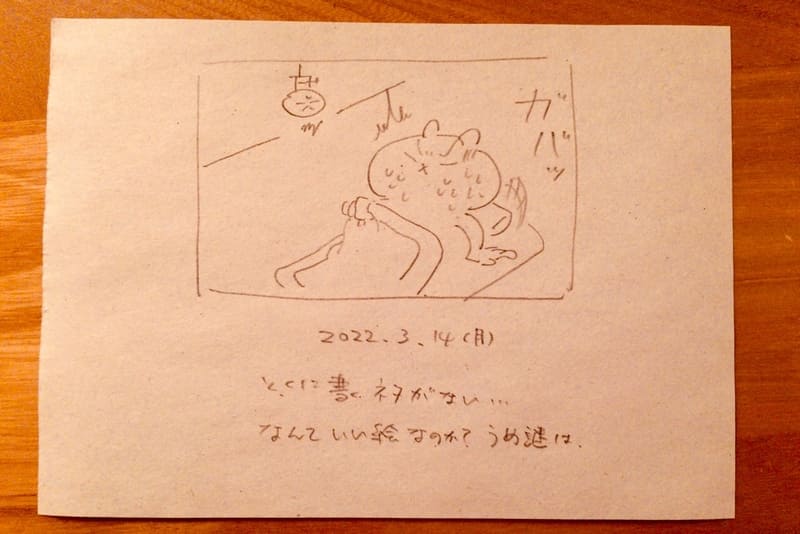 ガバッ
2022.3.14(月)
とくに書くネタがない…
なんていい絵なのか? うめ謎は.